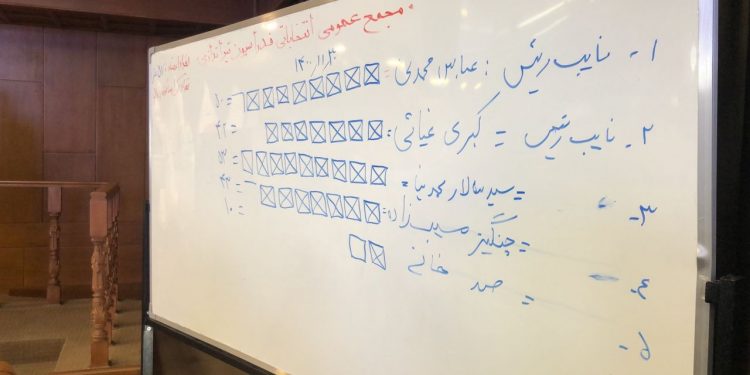 مجمع عمومی انتخاباتی فدراسیون تیراندازی
۱۴۰۰.۱۱.۳
۱- نایب رئیس : عباس محمدی = ۵۰
۲- نایب رئیس = کبری غیاثی = ۴۲
۳- = سید سالار محمدنیا = ۵۳
۴- = چنگیز = ۴۳
۵- = صمد خانی = ۱۰